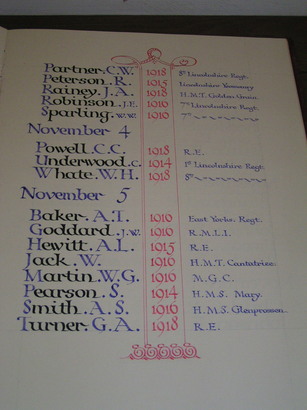 Partner. C.W. 1918 8th Lincolnshire Regt.
Peterson. R. 1915 Lincolnshire Yeomanry
Rainey. J.A. 1918 H.M.T.
Robinson. J.E. 1916 7th Lincolnshire Regt.
Sparling. W.W. 1916 7th
November 4
Powell. C.C. 1918 R.E.
Underwood. C. 1914 1st Lincolnshire Regt.
Whate. W.H. 1918 8th
November 5
Baker. A.T. 1916 East Yorks. Regt.
Goddard. J.W. 1916 R.M.L.I.
Hewitt. A.L. 1915 R.E.
Jack. W. 1916 H.M.T. Cantatrice.
Martin. W.G. 1916 M.G.C.
Pearson. S. 1914 H.M.S. Mary.
Smith. A.S. 1916 H.M.S.
Turner. G.A. 1918 R.E.